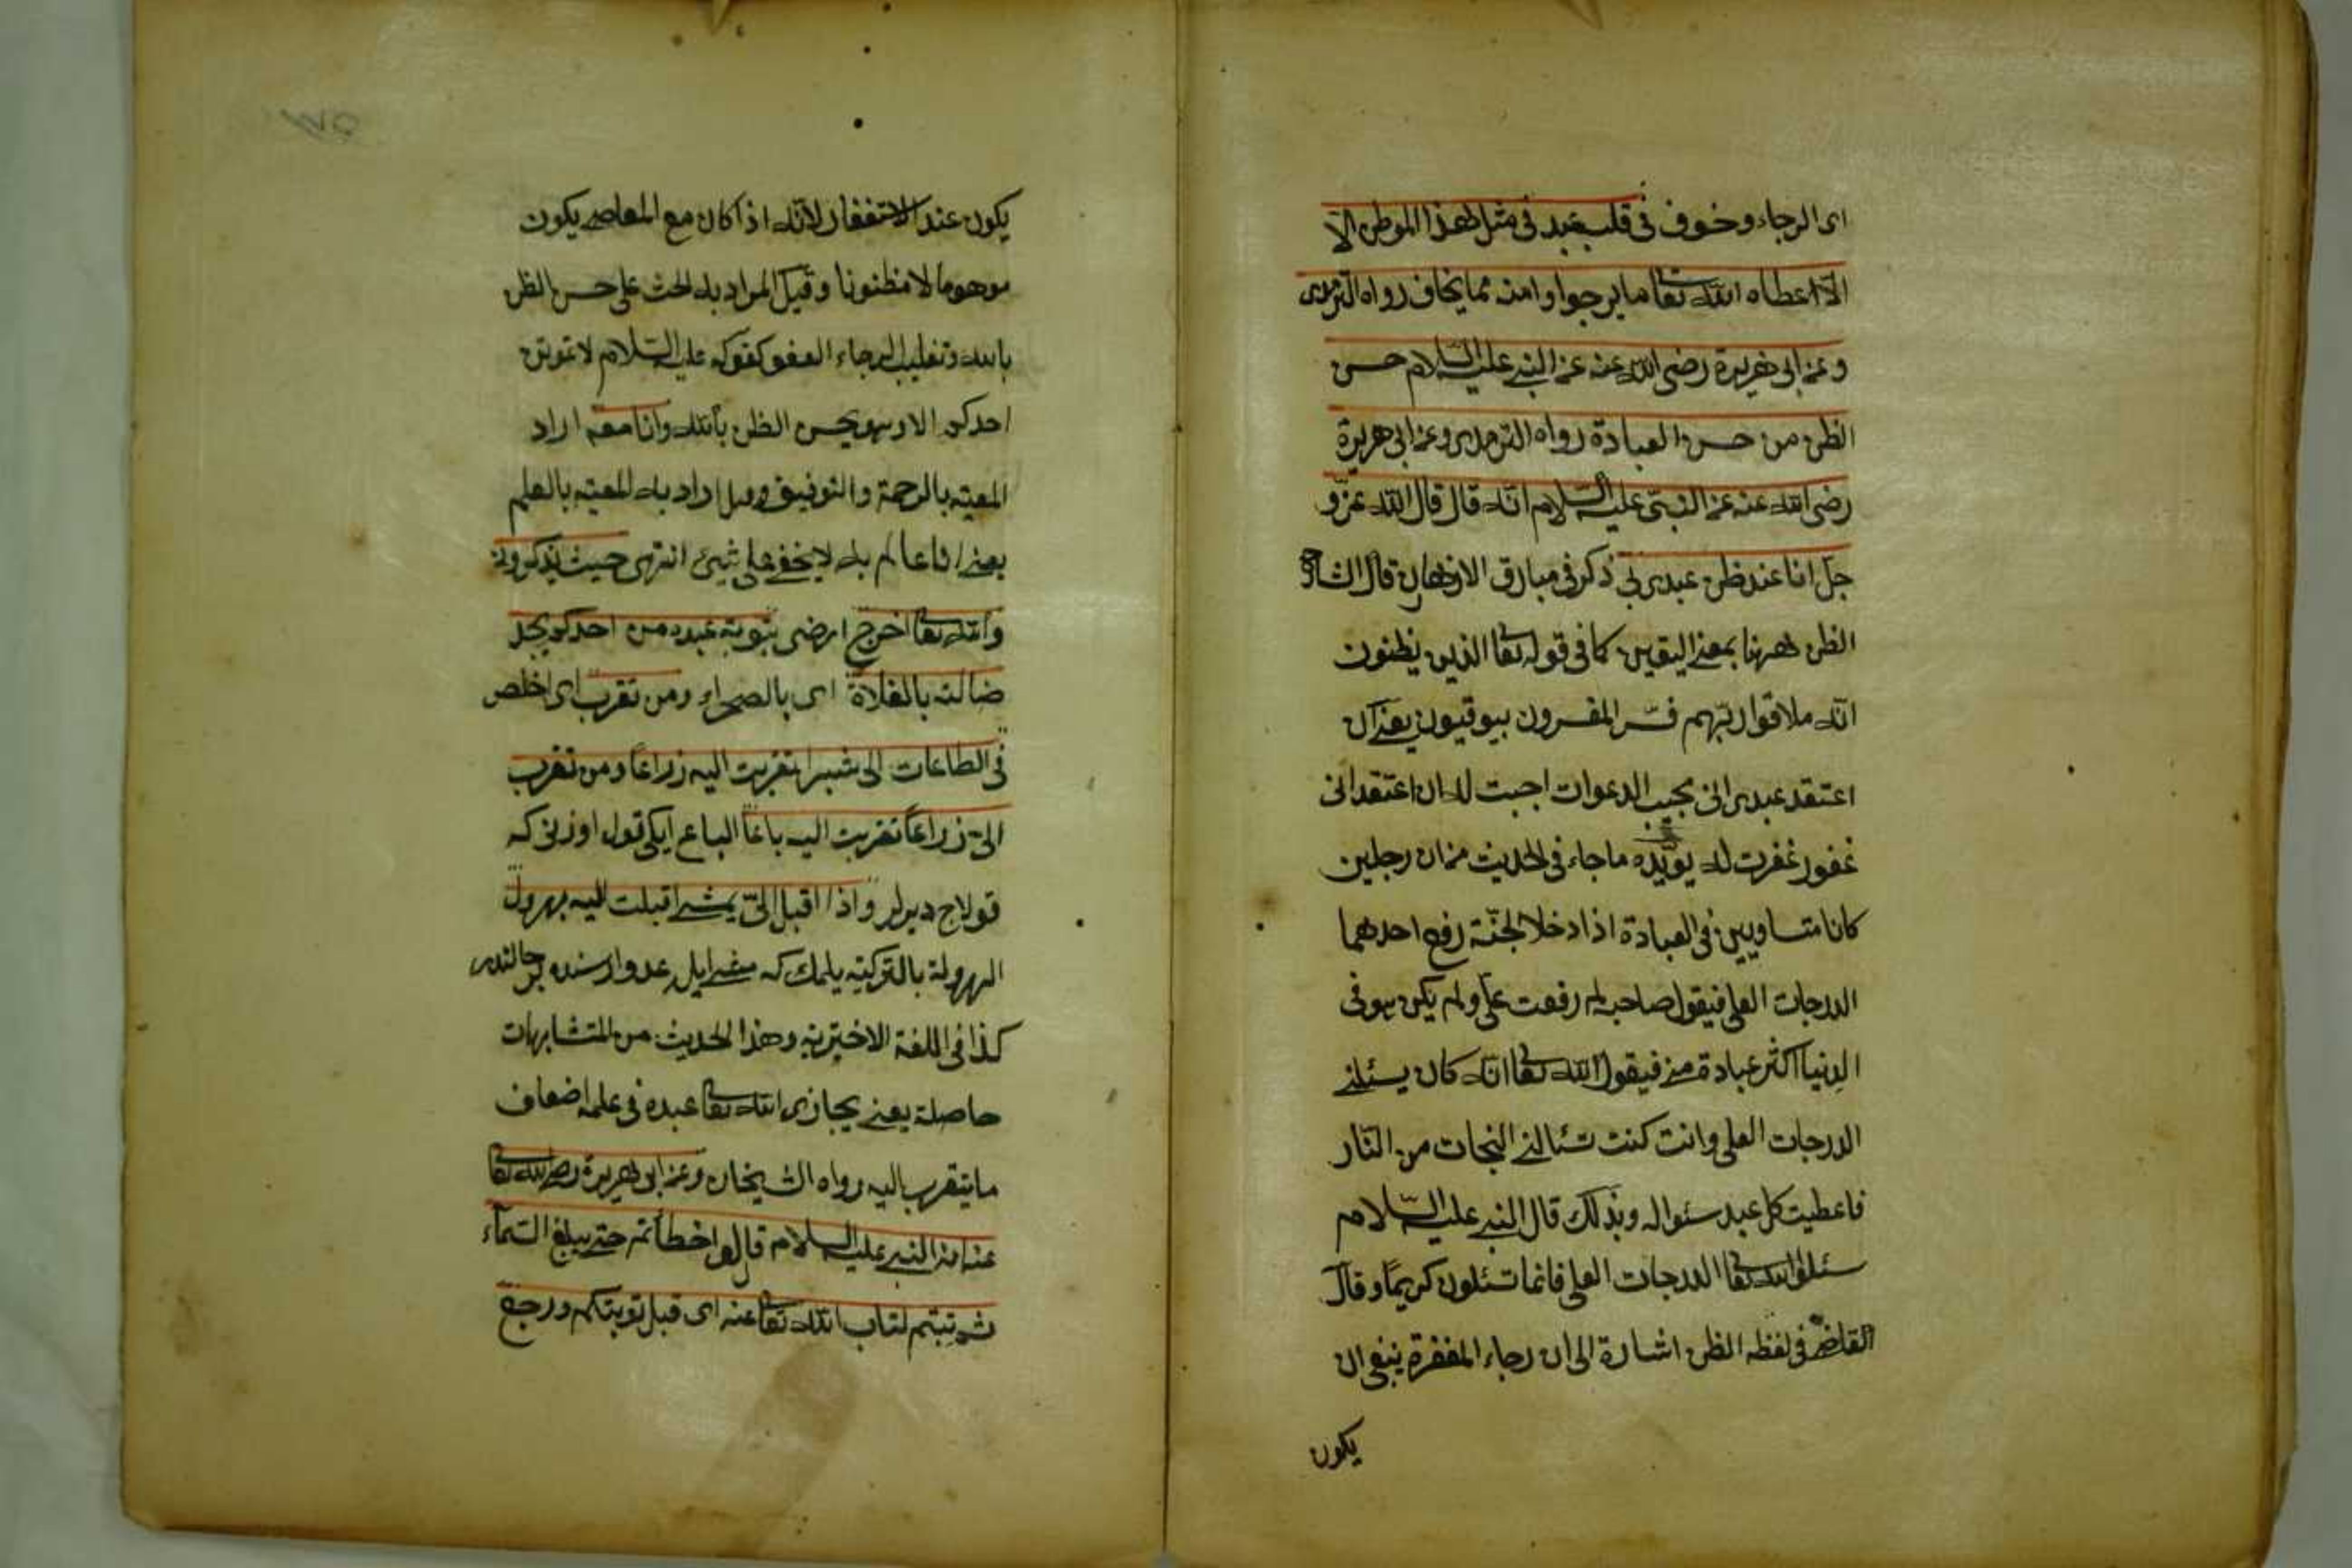 اى الرجاء وخوف فى قلب عبد فى مثل هذا الموطن الا
الا اعطاه الله تعا ما يرجوا وامنه مما يخاف رواه الترمدى
وعن ابى هريرة رضى الله عنه عن النبى عليه السلام حسن
الظن من حسن العبادة رواه الترمدى وعن ابى هريرة
رضى الله عنه عن النبى عليه السلام انه قال قال الله عز و
جل انا عند ظن عبدى بى ذكر فى مبارق الازهار قال الشارح
الظن ههنا بمعنى اليقين كما فى قوله تعا الذين يظنون
انه ملاقوا ربهم فسر المفسرون بيوقنون يعنى ان
اعتقد عبدى انى مجيب الدعوات اجبت له ان اعتقد انى
غفور غفرت له يؤيده ما جاء فى الحديث من ان رجلين
كانا متساويين فى العبادة اذا دخلا الجنة رفع احدهما
الدرجات العلى فيقول صاحبه لم رفعت على ولم يكن هو فى
الدنيا اكثر عبادة منى فيقول الله تعا انه كان يسئلنى
الدرجات العلى وانت كنت تسئالنى النجات من النار
فاعطيت كل عبد سئواله وبذلك قال النبى عليه السلام
سئلوا الله تعا الدرجات العلى فانما تسئلون كريما وقال
القاضى فى لفظه الظن اشارة الى ان رجاء المغفرة ينبغى ان
يكون
١٧٥
يكون عند الاستغفار لانه اذا كان مع المعاصى يكون
موهوما لا مظنونا وقيل المراد به الحث على حسن الظن
بالله وتغليب الرجاء العفو كقوله عليه السلام لا تموتن
احدكم الا وهو يحسن الظن بالله وانا معه اراد
المعيته بالرحمة والتوفيق وقيل اراد به المعيته بالعلم
يعنى انا عالم به لا يخفى على شيئ انتهى حيث يذكرونى
والله تعا اخرج ارضى بتوبة عبده من احدكم يجد
ضالته بالفلاة اى بالصحراء ومن تقرب اى اخلص
فى الطاعات الى شبرا تقربت اليه زراعا ومن تقرب
الى زراعا تقربت اليه باعا الباع ايكى قول اوزنى كه
قولاج ديرلر واذا اقبل الى يمشى اقبلت اليه بهرول
الهرولة بالتركيه يلمك كه مشى ايله عدو ارسنده بر حالتدر
كذا فى اللغة الاخترية وهذا الحديث من المتشابهات
حاصلة يعنى يجازى الله تعا عبده فى علمه اضعاف
ما يتقرب اليه رواه الشيخان وعن ابى هريرة رضى الله تعا
عنه عن النبى عليه السلام قال لو اخطأتم حتى يبلغ السمآء
ثم تبتم لتاب الله تعا عنه اى قبل توبتكم ورجع